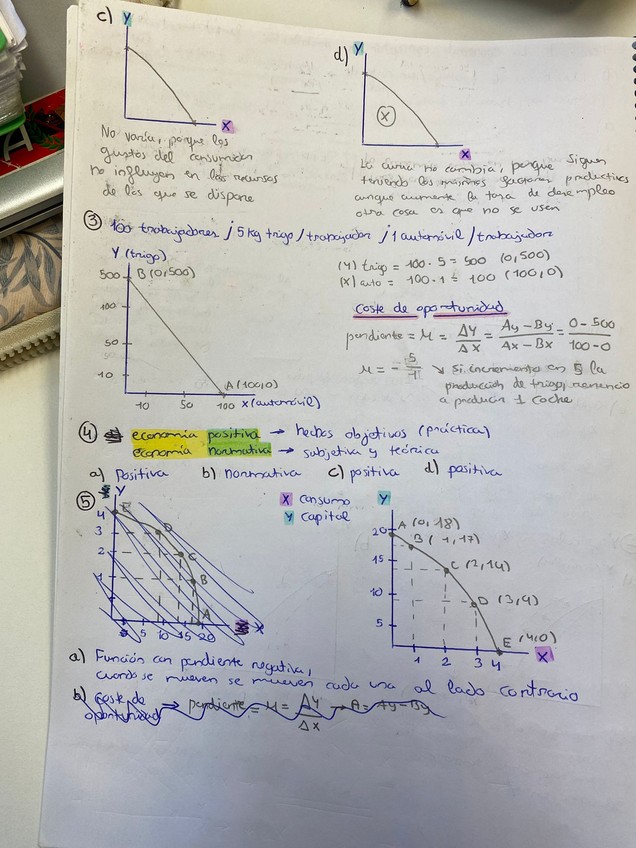 c) Y
X
No varía, porque los
gustos del consumidor
no influyen en los recursos
de los que se dispone
d) Y
X
X
La curva no cambia, porque siguen
teniendo los mismos factores productivos
aunque aumente la tasa de desempleo
otra cosa es que no se usen
③ 100 trabajadores ; 5 kg trigo / trabajador ; 1 automóvil / trabajador
Y (trigo)
500 B (0,500)
100
50
10
A (100,0)
10 50 100 X (automóvil)
(Y) trigo = 100 · 5 = 500 (0,500)
(X) auto = 100 · 1 = 100 (100,0)
Coste de oportunidad
pendiente = M = ΔY/ΔX = Ay - By/Ax - Bx = 0 - 500/100 - 0
M = - 5/1 ↘ Si incremento en 5 la
producción de trigo, renuncio
a producir 1 coche
④ economía positiva → hechos objetivos (práctica)
economía normativa → subjetiva y teórica
a) Positiva b) normativa c) positiva d) positiva
⑤ Y
4 E
3 D
2 C
1 B
A
5 10 15 20 X
X consumo
Y capital
Y
20 A (0,18)
B (1,17)
15 C (2,14)
10 D (3,9)
5
E (4,0)
1 2 3 4 X
a) Función con pendiente negativa,
cuando se mueven se mueven cada una al lado contrario
b) Coste de
oportunidad → pendiente = M = ΔY/ΔX → A = Ay - By